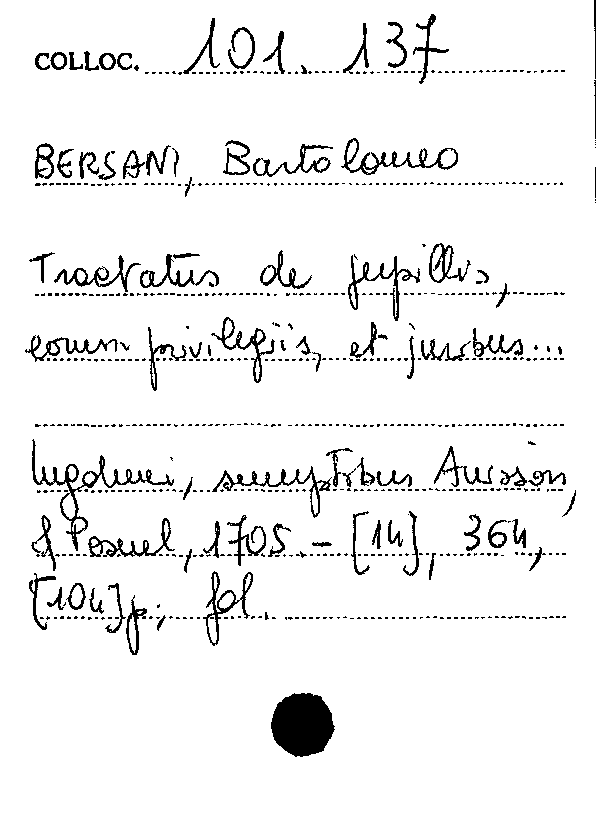 COLLOC. 101. 137
BERSANI, Bartolomeo
Tractatus de pupillis,
eorum privilegiis, et juribus...
Lugduni, sumptibus Anisson,
& Posuel, 1705. - [14], 364,
[104] p.; fol.